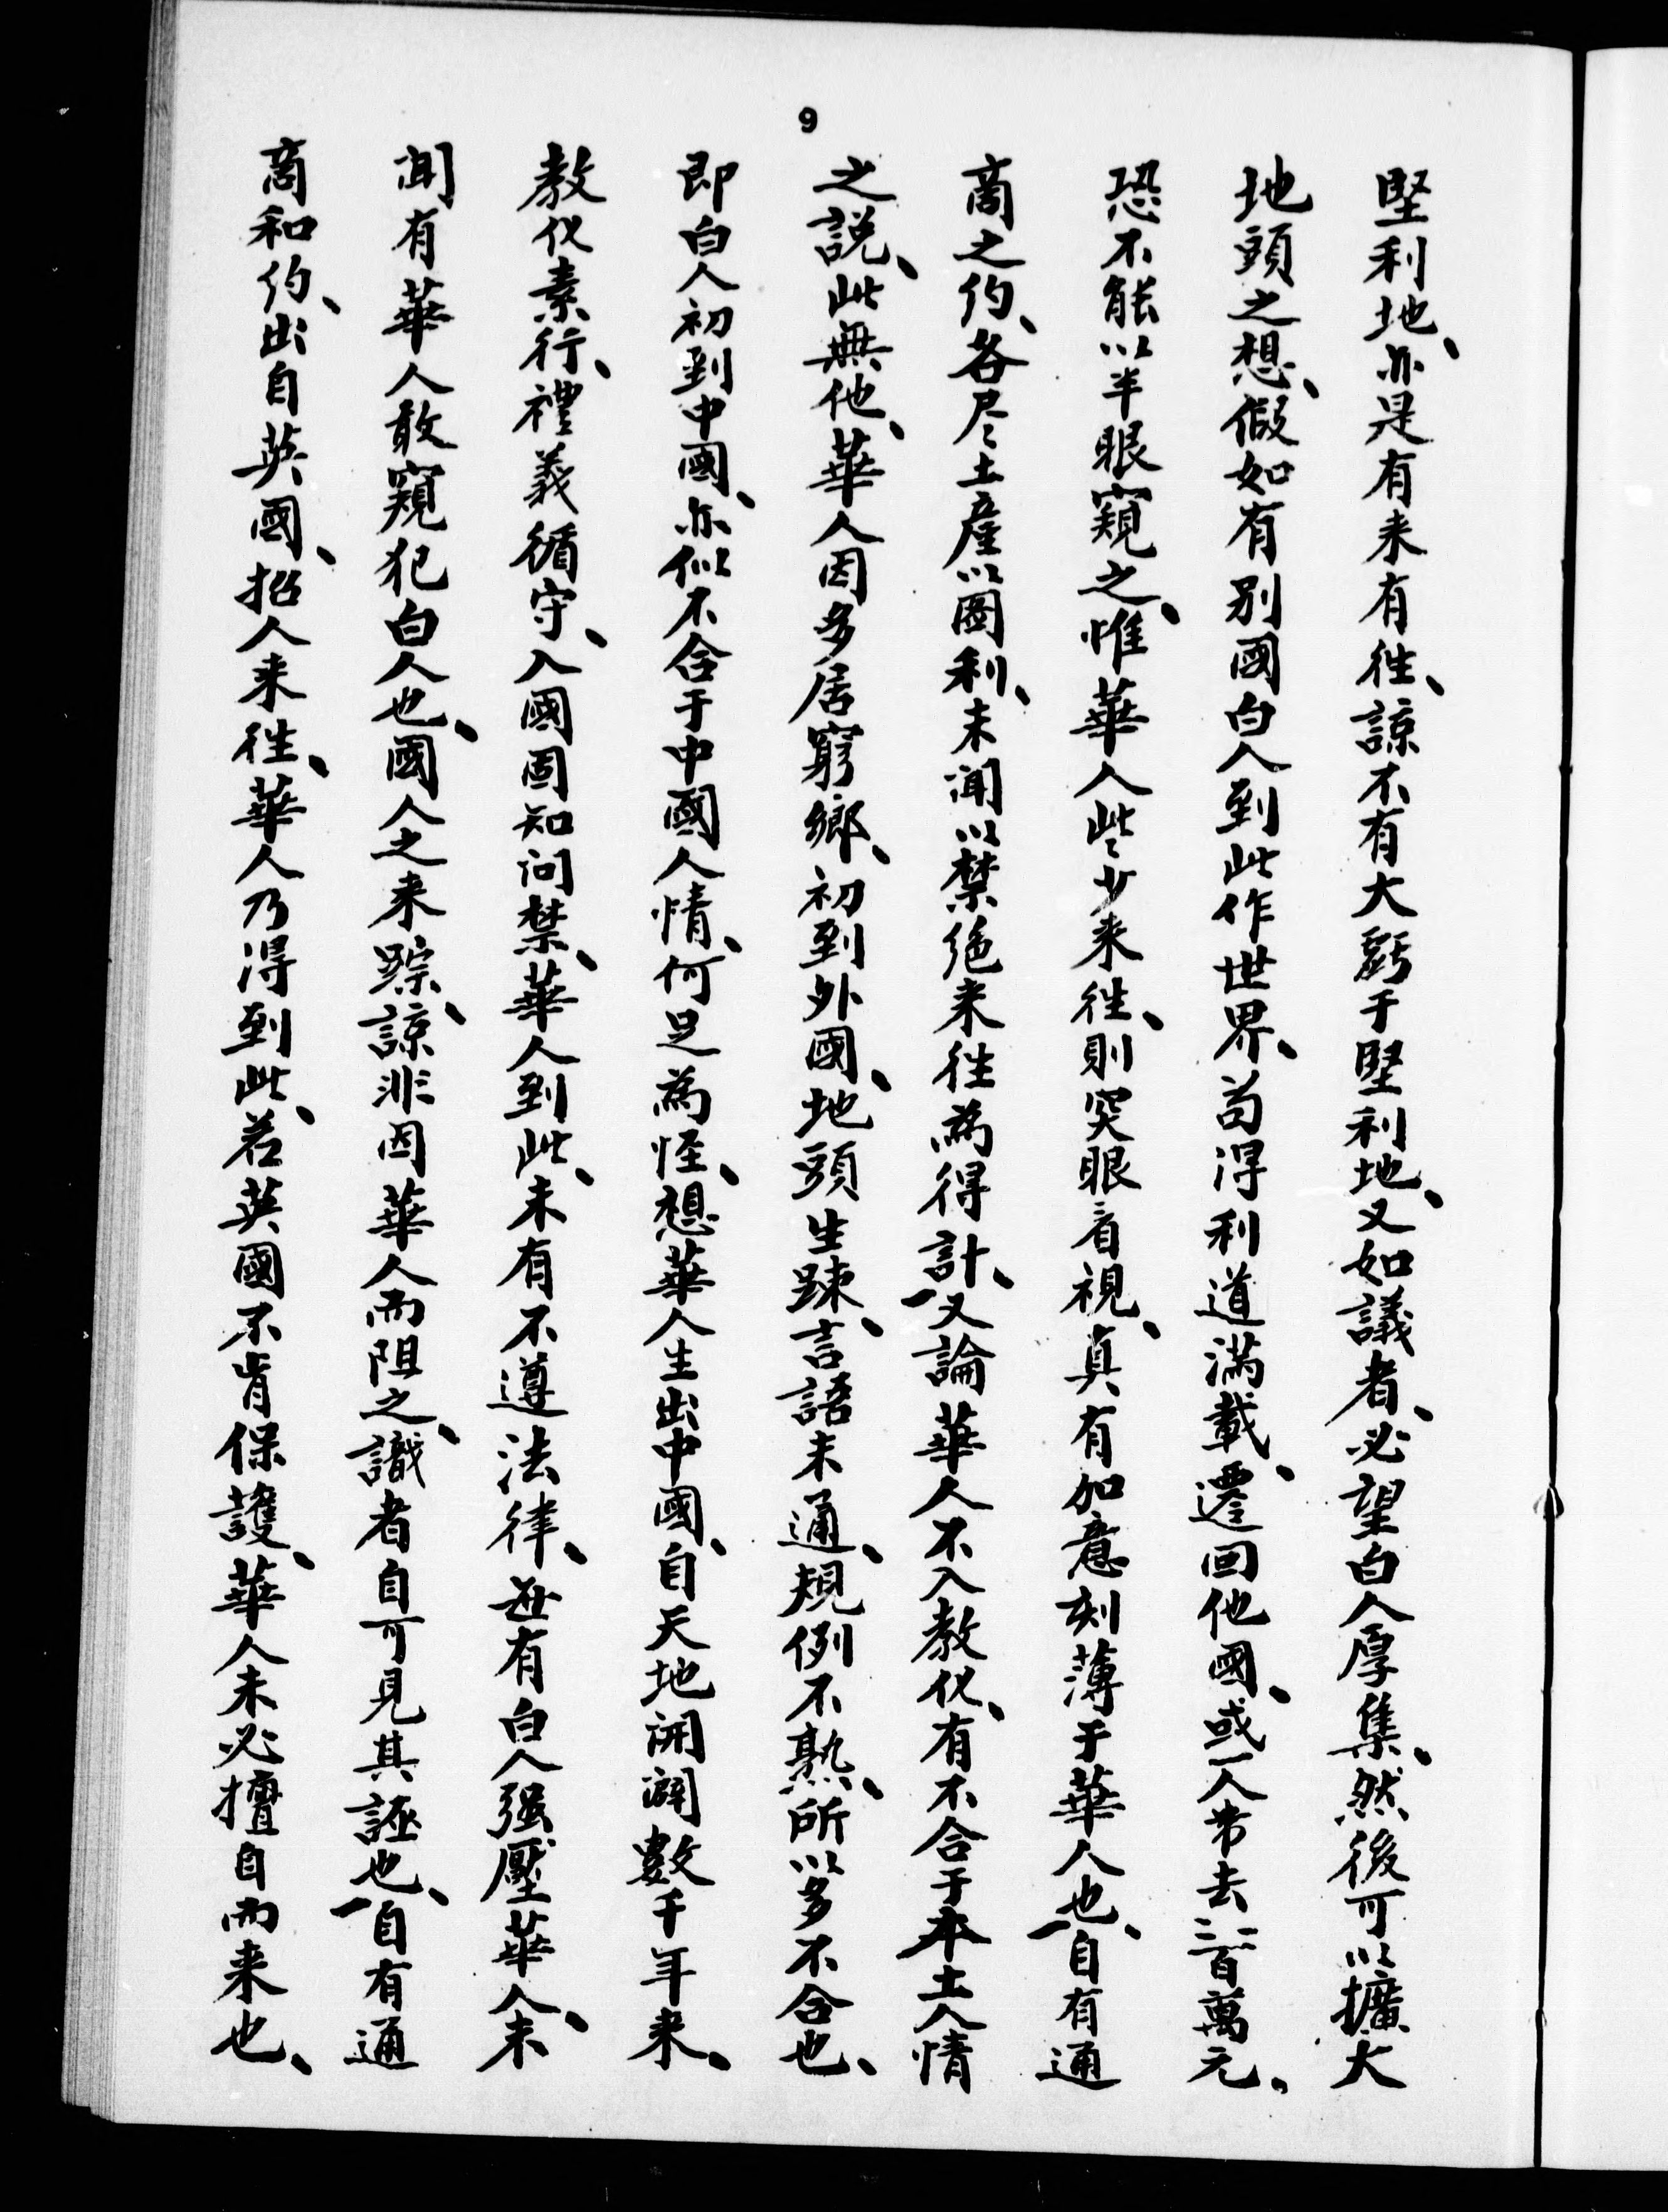 9
堅利地、亦是有来有徃、諒不有大虧于堅利地、又如議者、必望白人厚集、然後可以擴大
地頭之想、假如有別國白人到此作世界、苟得利道滿載、遷回他國、或一人帯去二三百萬元、
恐不能以半眼窺之、惟華人些少来徃、則突眼看視、真有加意刻薄于華人也、自有通
商之約、各尽土産以圖利、未聞以禁绝来徃為得計、又論華人不入教化、有不合于本土人情
之説、此無他、華人因多居窮鄉、初到外國、地頭生踈、言語未通、規例不熟、所以多不合也、
即白人初到中國、亦似不合于中國人情、何足為怪、想華人生出中國、自天地開闢數千年来、
教化素行、禮義循守、入國固知问禁、華人到此、未有不遵法律、每有白人强壓華人、未
聞有華人敢窺犯白人也、國人之来踪、諒非因華人而阻之、識者自可見其誣也、自有通
商和約、出自英國、招人来徃、華人乃得到此、若英國不肯保護、華人未必擅自而来也、